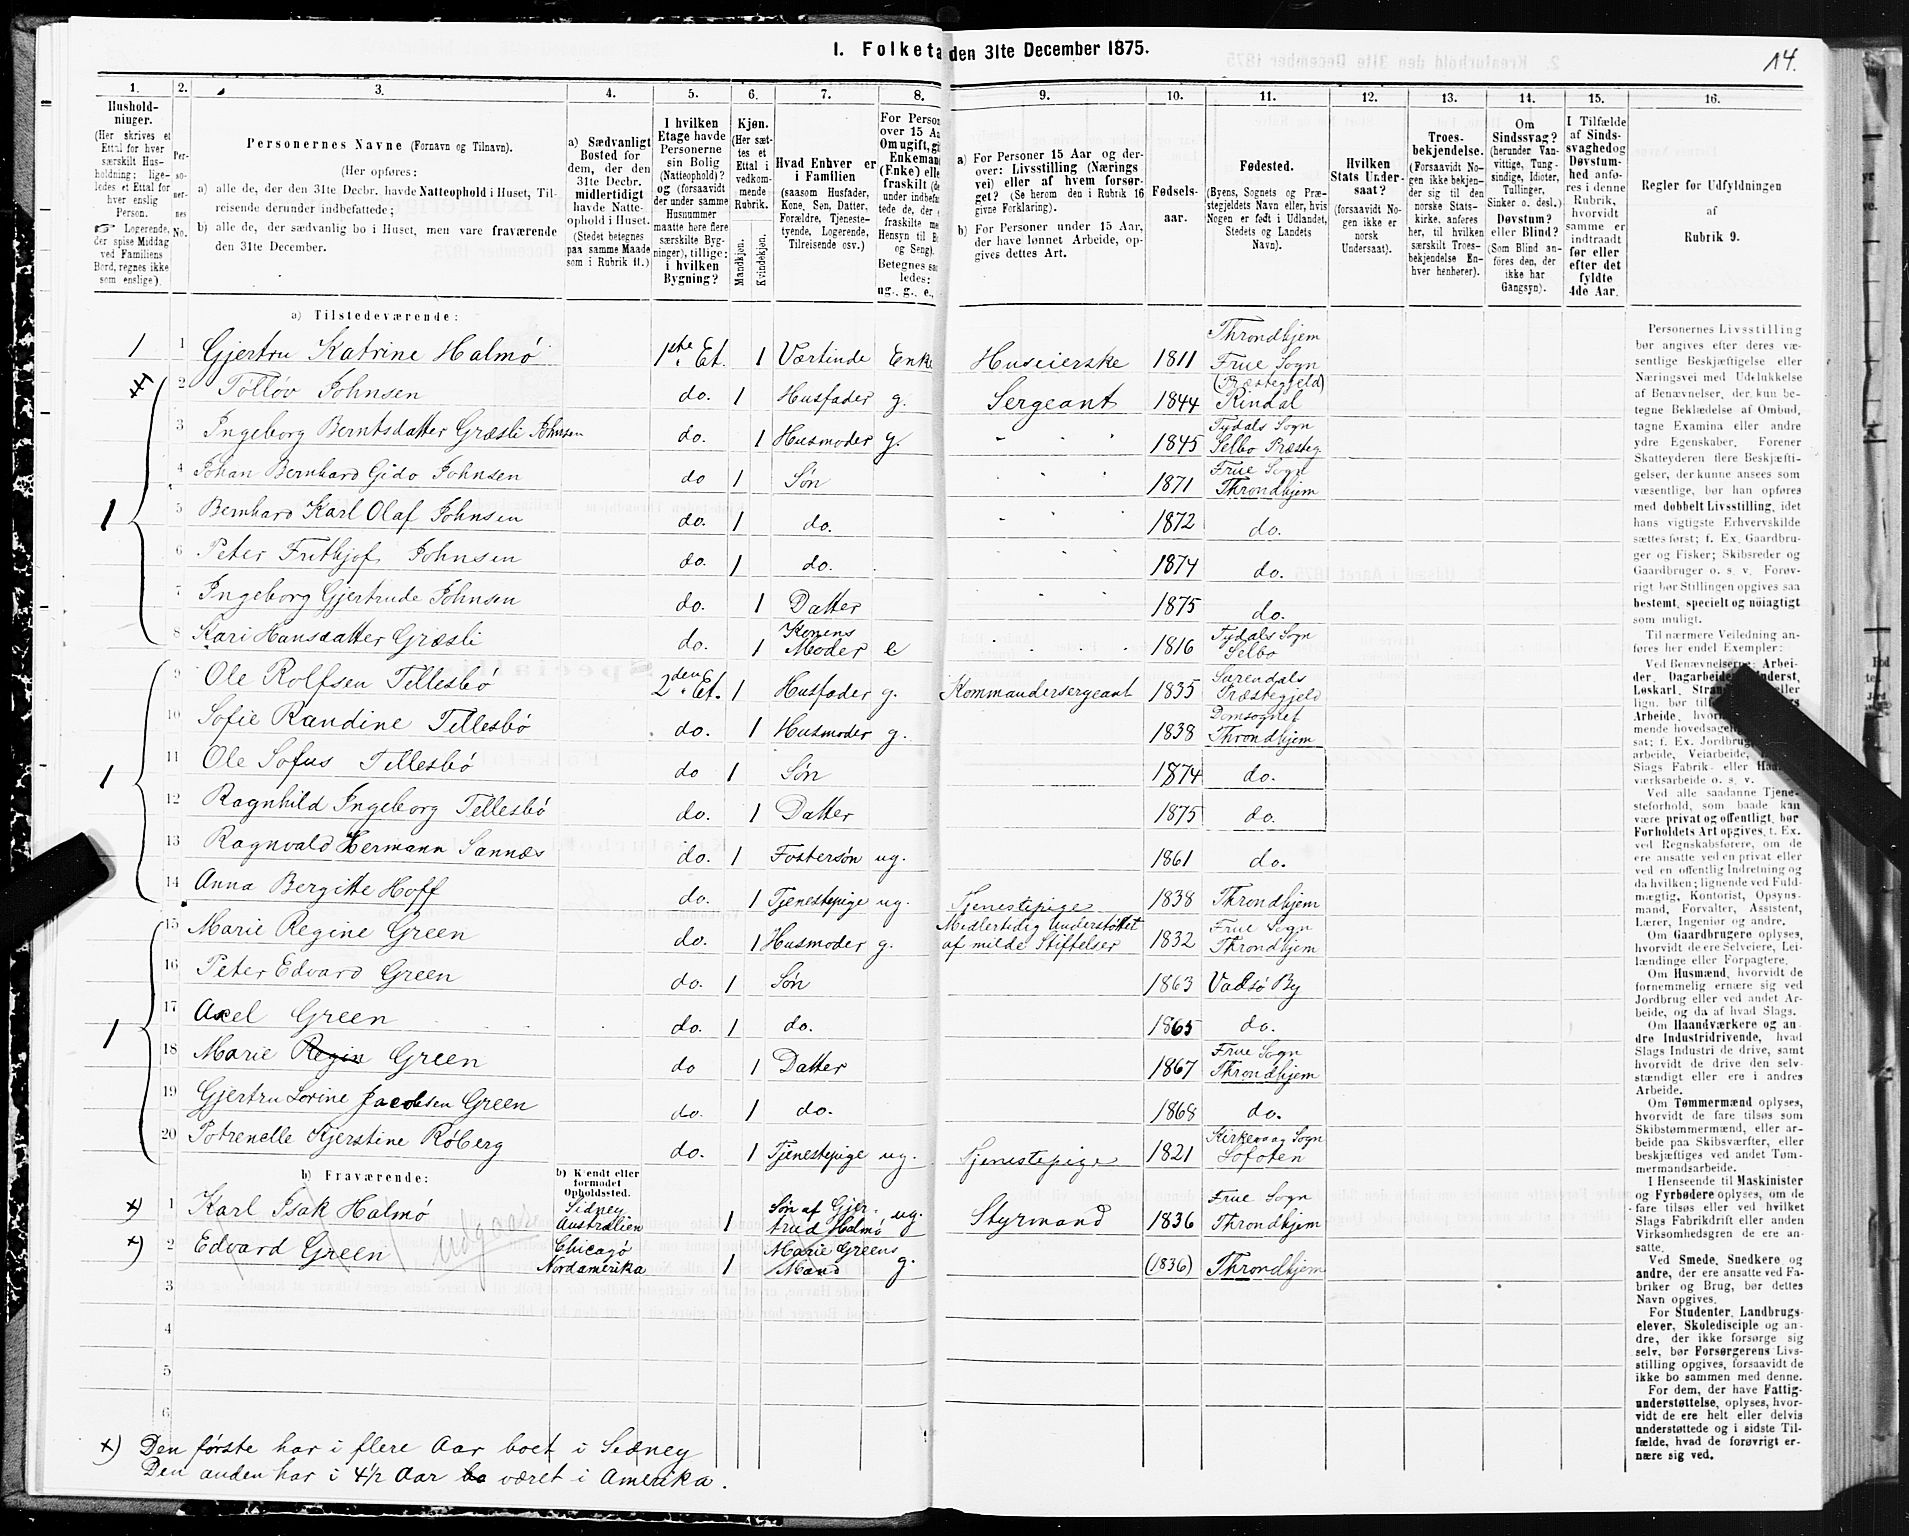 I. Folketa den 31te December 1875.
14.
1. 2. 3. 4. 5. 6. 7. 8. 9. 10. 11. 12. 13. 14. 15. 16.
Hushold-
ninger.
(Her skrives et
Ettal for hver
særskilt Hus-
holdning; lige-
ledes et Ettal for
hver enslig
Person.
☞ Logerende,
der spise Middag
ved Familiens
Bord, regnes ikke
som enslige).
Per-
so-
ner-
nes
No.
Personernes Navne (Fornavn og Tilnavn).
(Her opføres:
a) alle de, der den 31te Decbr. havde Natteophold i Huset, Til-
reisende derunder indbefattede;
b) alle de, der sædvanlig bo i Huset, men vare fraværende
den 31te December.
a) Sædvanligt
Bosted for
dem, der den
31te Decbr.
midlertidigt
havde Natte-
ophold i Huset.
(Stedet betegnes
paa samme Maade
som i Rubrik 11.)
I hvilken
Etage havde
Personerne
sin Bolig
(Natteophold)?
og (forsaavidt
der under samme
Husnummer
maatte here flere
særskilte Byg-
ninger), tillige:
i hvilken
Bygning?
Kjøn.
(Her sæt-
tes et
Ettal i
vedkom-
mende
Rubrik.
Mandkjøn.
Kvindekjøn.
Hvad Enhver er
i Familien
(saasom Husfader,
Kone, Søn, Datter,
Forældre, Tjeneste-
tyende, Logerende,
Tilreisende osv.)
For Person
over 15 Aa
Om ugift, gi
Enkeman
(Enke) elle
fraskilt (de
under indbefa
tede de, der e
fraskilte me
Hensyn til B
og Seng).
Betegnes saa
ledes:
ug., g., e.,
a) For Personer 15 Aar og der-
over: Livsstilling (Nærings
vei) eller af hvem forsør-
get? (Se herom den i Rubrik 16
givne Forklaring).
b) For Personer under 15 Aar,
der have lønnet Arbeide, op-
gives dettes Art.
Fødsels-
aar.
Fødested.
(Byens, Sognets og Præ-
stegjeldets Navn eller, hvis
Nogen er født i Udlandet,
Stedets og Landets
Navn).
Hvilken
Stats Under-
saat?
(forsaavidt No-
gen ikke er
norsk
Undersaat).
Troes-
bekjendelse.
(Forsaavidt No-
gen ikke bekjen-
der sig til den
norske Stats-
kirke, anføres
her, til hvilken
særskilt Troes-
bekjendelse En-
hver henhører).
Om
Sindssvag?
(herunder Van-
vittige, Tung-
sindige, Idioter,
Tullinger,
Sinker o. desl.)
Døvstum?
eller Blind?
(Som Blind an-
føres den, der
ikke har
Gangsyn).
I Tilfælde
af Sinds-
svaghed og
Døvstum-
hed anfø-
res i denne
Rubrik,
hvorvidt
samme er
indtraadt
før eller
efter det
fyldte
4de Aar.
Regler for Udfyldningen
af
Rubrik 9.
a) Tilstedeværende:
1 1 Gjertru Katrine Halmø 1ste Et. 1 Værtinde Enke Huseierske 1811 Throndhjem Frue Sogn
2 Tolløv Johnsen do. 1 Husfader g. Sergeant 1844 (Præstegjeld) Rindal
3 Ingeborg Berntsdatter Græsli Johnsen do. 1 Husmoder g. 1845 Tydals Sogn Selbo Præsteg
4 Johan Bernhard Gido Johnsen do 1 Søn 1871 Frue Sogn Throndhjem
1 5 Bernhard Karl Olaf Johnsen do. 1 do. 1872 do.
6 Peter Frithjof Johnsen do. 1 do. 1874 do.
7 Ingeborg Gjertrude Johnsen do. 1 Datter 1875 do.
8 Kari Hansdatter Græsli do. 1 Konens Moder e 1816 Tydals Sogn Selbo
9 Ole Rolfsen Tellesbø 2den Et. 1 Husfader g. Kommandersergeant 1835 Surendals Præstegjeld
10 Sofie Randine Tellesbø do. 1 Husmoder g. 1838 Domsognet Throndhjem
1 11 Ole Sofus Tellesbø do 1 Søn 1874 do.
12 Ragnhild Ingeborg Tellesbø do. 1 Datter 1875 do.
13 Ragnvald Hermann Sannæs do. 1 Fostersøn ug. 1861 do.
14 Anna Bergitte Hoff do. 1 Tjenestepige ug. Tjenestepige 1838 Throndhjem
15 Marie Regine Green do. 1 Husmoder g. Midlertidig Understøttet af milde Stiftelser 1832 Frue Sogn Throndhjem
16 Peter Edvard Green do. 1 Søn 1863 Vadsø By
1 17 Axel Green do. 1 do. 1865 do.
18 Marie Regin Green do 1 Datter 1867 Frue Sogn Throndhjem
19 Gjertru Lovine Jacobsen Green do. 1 do. 1868 do.
20 Potrenelle Kjerstine Røberg do. 1 Tjenestepige ug. Tjenestepige 1821 Kirkevaag Sogn Lofoten
b) Fraværende:
b) Kjendt eller
formodet
Opholdssted.
x) 1 Karl Isak Halmø Sidney Australien 1 Søn af Gjertrud Halmø ug. Styrmand 1836 Frue Sogn Throndhjem
x) 2 Edvard Green udgaar Chicago Nordamerika 1 Marie Greens Mand g. (1836) Throndhjem
3
4
5
6
x) Den første har i flere Aar boet i Sidney
Den anden har i 4½ Aar bo været i Amerika.
Personernes Livsstilling
bør angives efter deres væ-
sentlige Beskjæftigelse eller
Næringsvei med Udelukkelse
af Benævnelser, der kun be-
tegne Beklædelse af Ombud,
tagne Examina eller andre
ydre Egenskaber. Forener
Skatteyderen flere Beskjæfti-
gelser, der kunne ansees som
væsentlige, bør han opføres
med dobbelt Livsstilling, idet
hans vigtigste Erhvervskilde
sættes først; f. Ex. Gaardbru-
ger og Fisker; Skibsreder og
Gaardbruger o. s. v. Forøv-
rigt bør Stillingen opgives saa
bestemt, specielt og nöiagtigt
som muligt.
Til nærmere Veiledning an-
føres her endel Exempler:
Ved Benævnelserne: Arbei-
der, Dagarbeider, Inderst,
Løskarl, Stran eller
lign. bør til s
Arbeide, hvor
mende hovedsagelig
sat; f. Ex. Jordbrug,
arbeide, Veiarbeide,
Slags Fabrik- eller Haa
værksarbeide o. s. v.
Ved alle saadanne Tjene-
steforhold, som baade kan
være privat og offentligt, bør
Forholdets Art opgives, t. Ex.
ved Regnskabsførere, om de
ere ansatte ved en privat eller
ved en offentlig Indretning og
da hvilken; lignende ved Fuld-
mæglig, Kontorist, Opsyns-
mand, Forvalter, Assistent,
Lærer, Ingeniør og andre.
Om Gaardbrugere oplyses,
hvorvidt de ere Selveiere, Lei-
lændinge eller Forpagtere.
Om Husmænd, hvorvidt de
fornemmelig ernære sig ved
Jordbrug eller ved andet Ar-
beide, og da af hvad Slags.
Om Haandværkere og an-
dre Industridrivende, hvad
Slags Industri de drive, samt
hvorvidt de drive den selv-
stændigt eller ere i andres
Arbeide.
Om Tømmermænd oplyses,
hvorvidt de fare tilsøs som
Skibstømmermænd, eller ar-
beide paa Skibsværfter, eller
beskjæftiges ved andet Tøm-
mermandsarbeide.
I Henseende til Maskinister
og Fyrbødere oplyses, om de
fare tilsøs eller ved hvilket
Slags Fabrikdrift eller anden
Virksomhedsgren de ere an-
satte.
Ved Smede, Snedkere og
andre, der ere ansatte ved Fa-
briker og Brug, bør dettes
Navn opgives.
For Studenter, Landbrugs-
elever, Skoledisciple og an-
dre, der ikke forsørge sig
selv, bør Forsørgerens Livs-
stilling opgives, forsaavidt de
ikke bo sammen med denne.
For dem, der have Fattig-
understøttelse, oplyses, hvor-
vidt de ere helt eller delvis
understøttede og i sidste Til-
fælde, hvad de forøvrigt er-
nære sig ved.